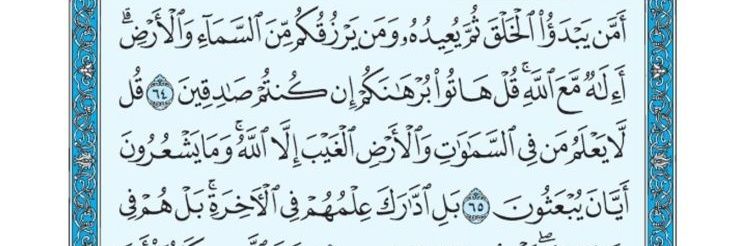 أَمَّن يَبْدَؤُا۟ ٱلْخَلْقَ ثُمَّ يُعِيدُهُۥ وَمَن يَرْزُقُكُم مِّنَ ٱلسَّمَآءِ وَٱلْأَرْضِ ۗ
أَءِلَـٰهٌ مَّعَ ٱللَّهِ ۚ قُلْ هَاتُوا۟ بُرْهَـٰنَكُمْ إِن كُنتُمْ صَـٰدِقِينَ ٦٤ قُل
لَّا يَعْلَمُ مَن فِى ٱلسَّمَـٰوَٰتِ وَٱلْأَرْضِ ٱلْغَيْبَ إِلَّا ٱللَّهُ ۚ وَمَا يَشْعُرُونَ
أَيَّانَ يُبْعَثُونَ ٦٥ بَلِ ٱدَّٰرَكَ عِلْمُهُمْ فِى ٱلْـَٔاخِرَةِ ۚ بَلْ هُمْ فِى